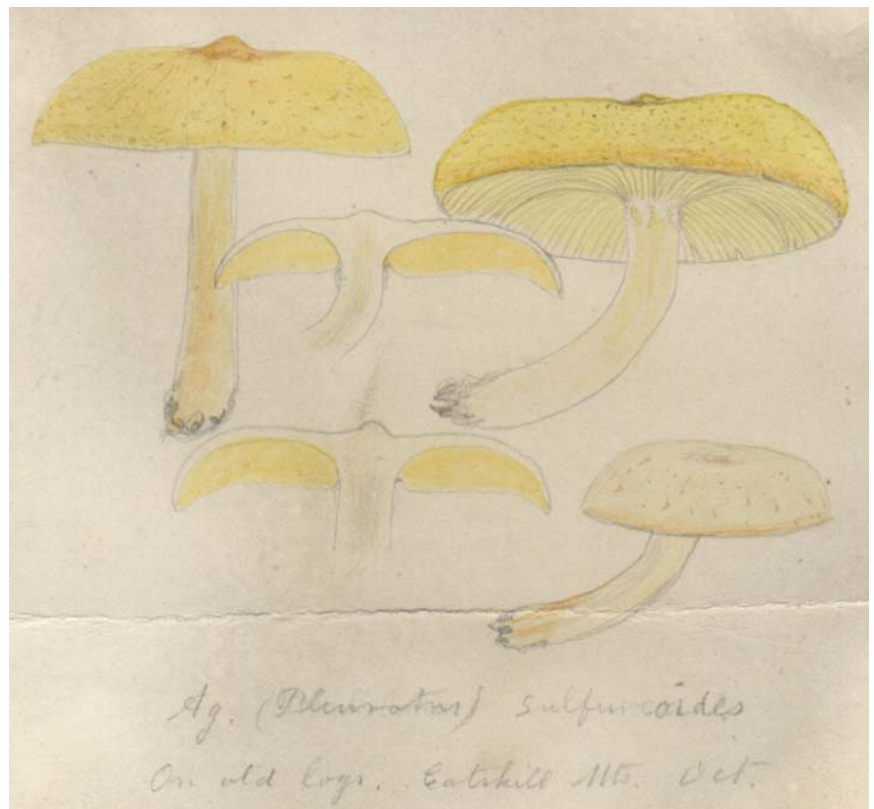 Ag. (Pleurotus) sulfureoides
On old logs. Catskill Mts. Oct.